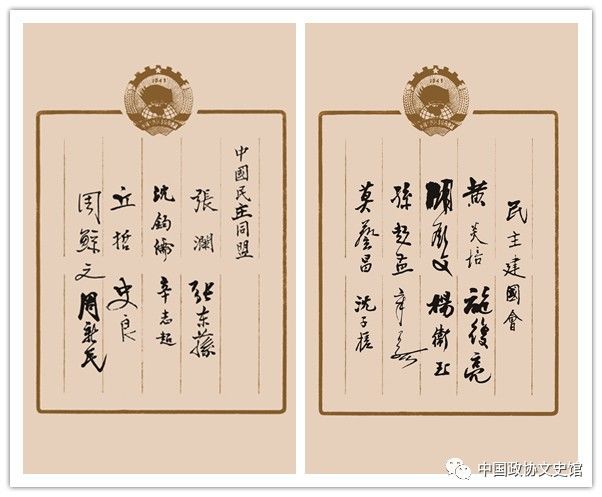 1949
中國民主同盟
張瀾 张东蓀
沈鈞儒 辛志超
丘哲 史良
周鲸文 周新民
1949
民主建國會
黄炎培 施復亮
胡厥文 楊衛玉
孫起孟
莫藝昌 沈子槎
中国政协文史馆